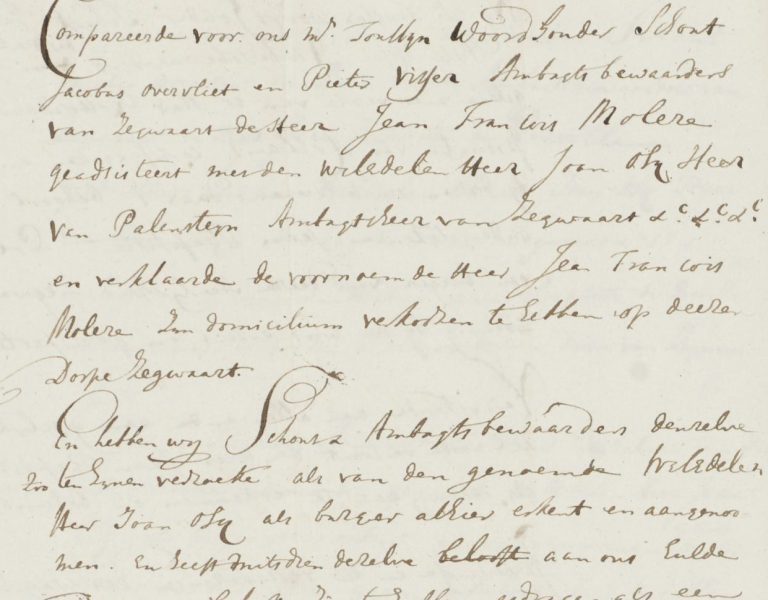 Compareerde voor ons Mr. Woordhouder Schout
Jacobus overvliet en Pieter Visser Ambagtsbewaarders
van Zegwaart de Heer Jean Francois Molere
geadsisteert met den WelEdelen Heer Joan Osy Heer
van Palensteyn Ambagtsheer van Zegwaart &c. &c. &c.
en verklaarde de voornoemde Heer Jean Francois
Molere Zyn domicilium verkoozen te hebben op deezen
Dorpe Zegwaart.
En hebben wy Schout & Ambagtsbewaarders denzelve
Zoo ten Zynen verzoeke als van den genoemde WelEdelen
Heer Joan Osy als burger alhier erkent en aangenoo
men. En heeft mitsdien dezelve belooft aan ons Hulde
als een